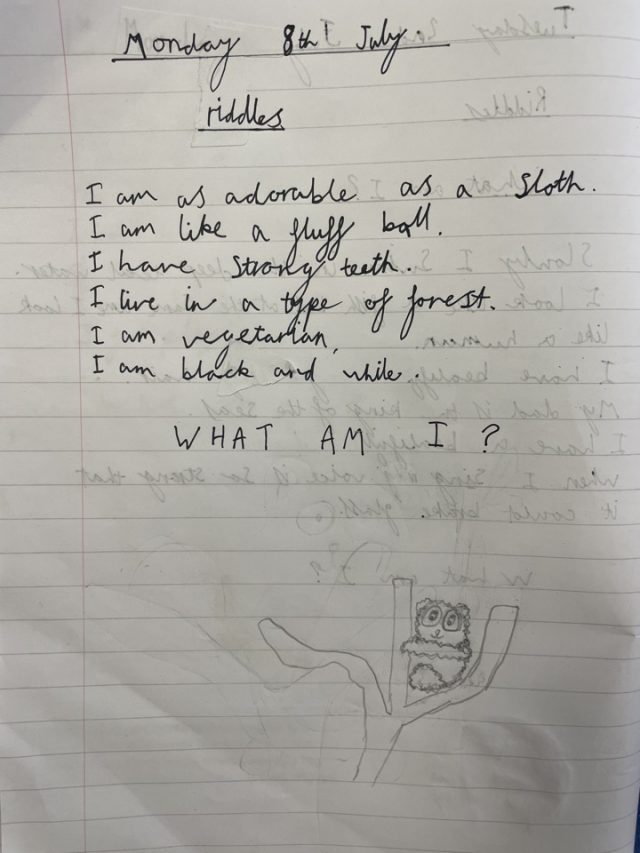 Monday 8th July.
riddles
I am as adorable as a Sloth.
I am like a fluff ball.
I have Strong teeth.
I live in a type of forest.
I am vegetarian.
I am black and white.
WHAT AM I ?